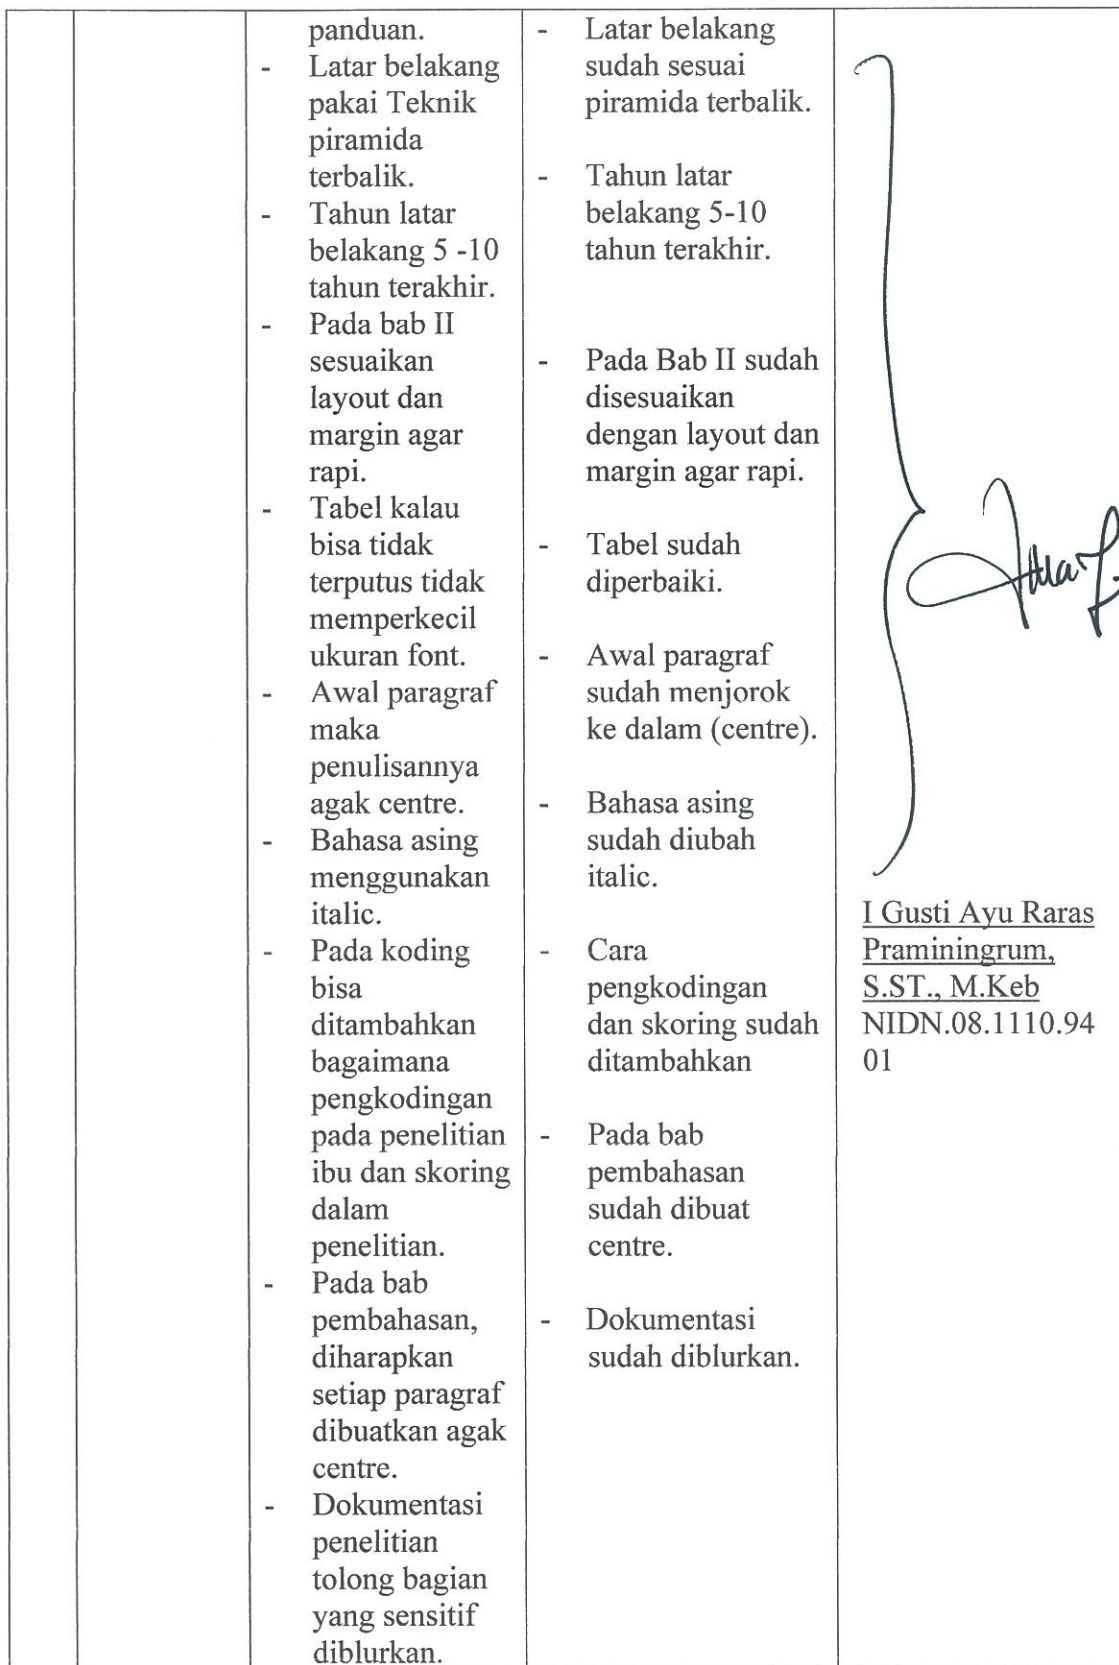 panduan.
- Latar belakang
pakai Teknik
piramida
terbalik.
- Tahun latar
belakang 5 -10
tahun terakhir.
- Pada bab II
sesuaikan
layout dan
margin agar
rapi.
- Tabel kalau
bisa tidak
terputus tidak
memperkecil
ukuran font.
- Awal paragraf
maka
penulisannya
agak centre.
- Bahasa asing
menggunakan
italic.
- Pada koding
bisa
ditambahkan
bagaimana
pengkodingan
pada penelitian
ibu dan skoring
dalam
penelitian.
- Pada bab
pembahasan,
diharapkan
setiap paragraf
dibuatkan agak
centre.
- Dokumentasi
penelitian
tolong bagian
yang sensitif
diblurkan.
- Latar belakang
sudah sesuai
piramida terbalik.
- Tahun latar
belakang 5-10
tahun terakhir.
- Pada Bab II sudah
disesuaikan
dengan layout dan
margin agar rapi.
- Tabel sudah
diperbaiki.
- Awal paragraf
sudah menjorok
ke dalam (centre).
- Bahasa asing
sudah diubah
italic.
- Cara
pengkodingan
dan skoring sudah
ditambahkan
- Pada bab
pembahasan
sudah dibuat
centre.
- Dokumentasi
sudah diblurkan.
I Gusti Ayu Raras
Praminingrum,
S.ST., M.Keb
NIDN.08.1110.94
01